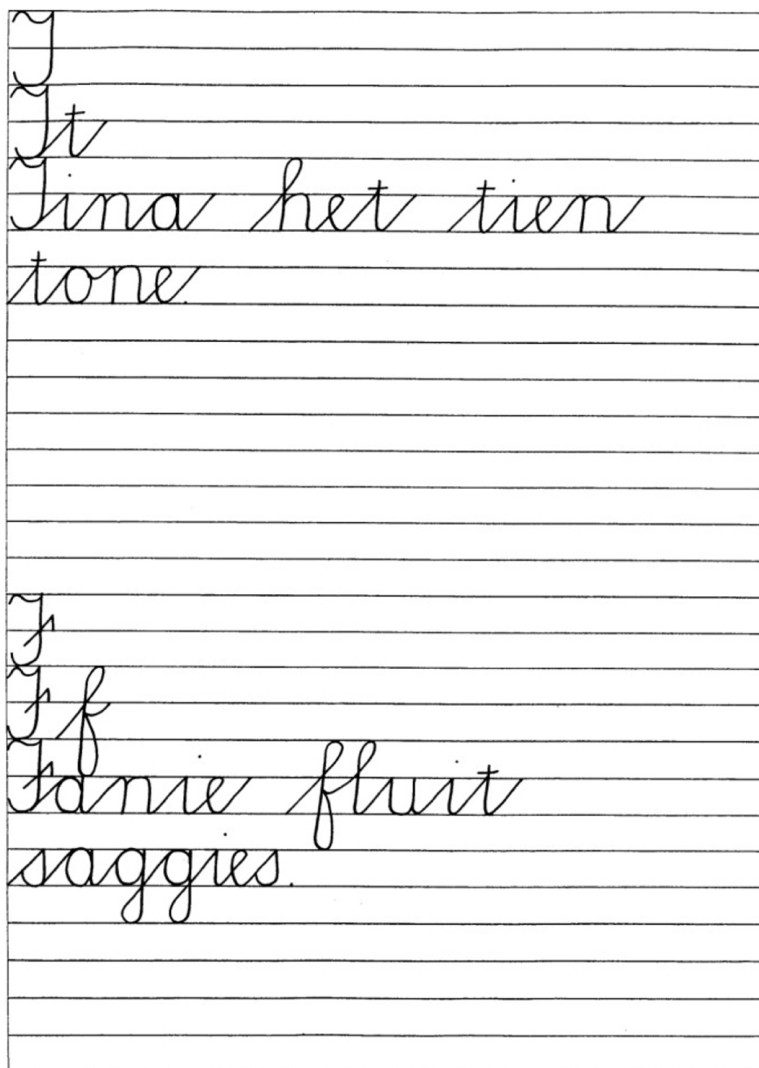 T
Tt
Tina het tien
tone.
F
F f
Fanie fluit
saggies.